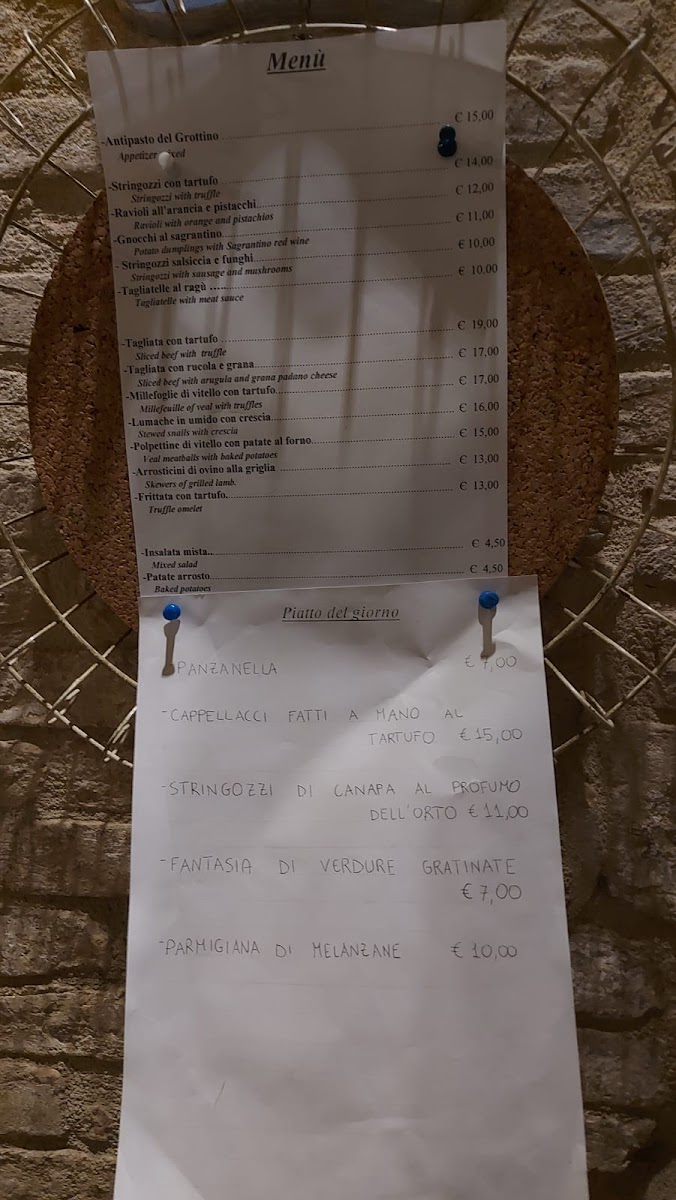 Menù
-Antipasto del Grottino € 15,00
Appetizer mixed
-Stringozzi con tartufo € 14,00
Stringozzi with truffle
-Ravioli all'arancia e pistacchi € 12,00
Ravioli with orange and pistachios
-Gnocchi al sagrantino € 11,00
Potato dumplings with Sagrantino red wine
- Stringozzi salsiccia e funghi € 10,00
Stringozzi with sausage and mushrooms
-Tagliatelle al ragù € 10.00
Tagliatelle with meat sauce
-Tagliata con tartufo € 19,00
Sliced beef with truffle
-Tagliata con rucola e grana € 17,00
Sliced beef with arugula and grana padano cheese
-Millefoglie di vitello con tartufo € 17,00
Millefeuille of veal with truffles
-Lumache in umido con crescia € 16,00
Stewed snails with crescia
-Polpettine di vitello con patate al forno € 15,00
Veal meatballs with baked potatoes
-Arrosticini di ovino alla griglia € 13,00
Skewers of grilled lamb.
-Frittata con tartufo. € 13,00
Truffle omelet
-Insalata mista € 4,50
Mixed salad
-Patate arrosto € 4,50
Baked potatoes
Piatto del giorno
PANZANELLA € 7,00
-CAPPELLACCI FATTI A MANO AL
TARTUFO € 15,00
-STRINGOZZI DI CANAPA AL PROFUMO
DELL'ORTO € 11,00
-FANTASIA DI VERDURE GRATINATE
€ 7,00
-PARMIGIANA DI MELANZANE € 10,00